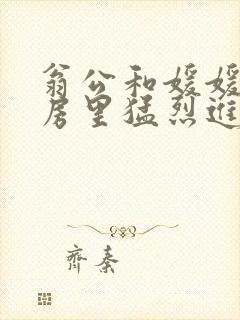 翁公和媛媛
房里猛烈进
齐秦